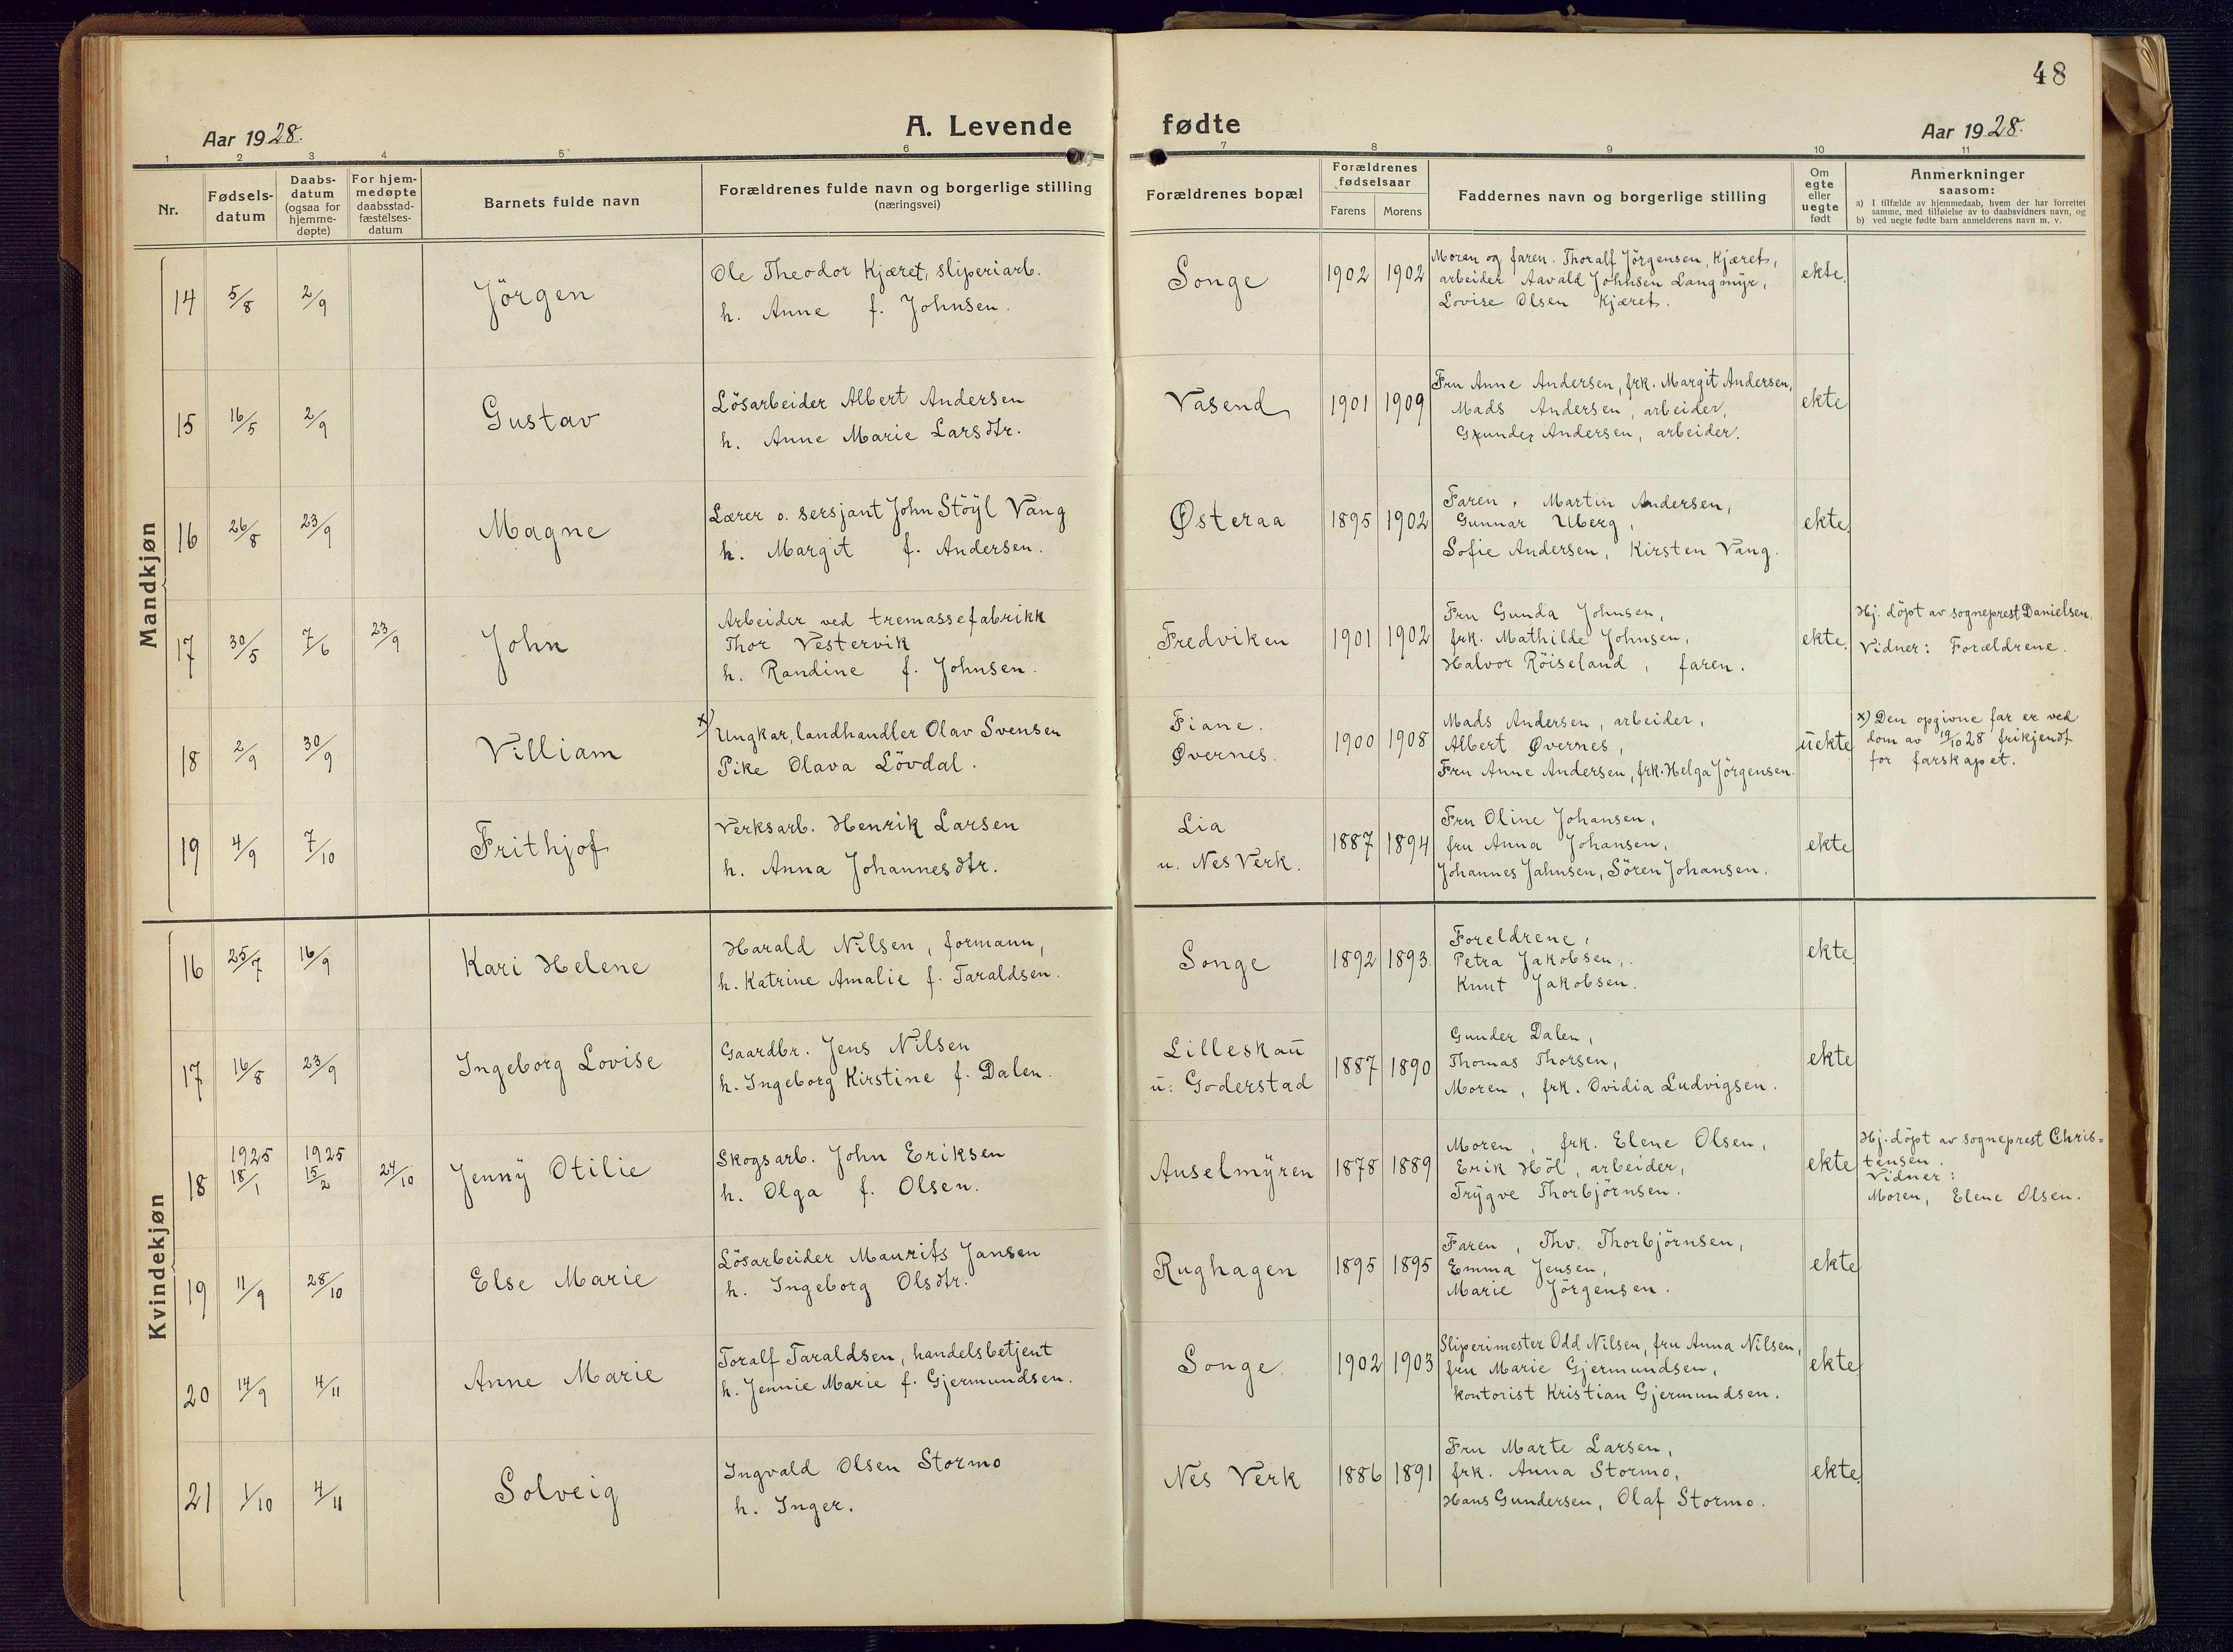 48
Aar 1928.
A. Levende fødte
Aar 1928.
1 2 3 4 5 6 7 8 9 10 11
Nr.
Fødsels-
datum
Daabs-
datum
(ogsaa for
hjemme-
døpte)
For hjem-
medøpte
daabsstad-
fæstelses-
datum
Barnets fulde navn
Forældrenes fulde navn og borgerlige stilling
(næringsvei)
Forældrenes bopæl
Forældrenes
fødselsaar
Farens Morens
Faddernes navn og borgerlige stilling
Om
egte
eller
uegte
født
Anmerkninger
saasom:
a) I tilfælde av hjemmedaab, hvem der har forrettet
samme, med tilføielse av to daabsvidners navn, og
b) ved uegte fødte barn anmelderens navn m. v.
Mandkjøn
14 5/8 2/9 Jörgen
Ole Theodor Kjæret, sliperiarb.
h. Anne f. Johnsen.
Songe 1902 1902
Moren og faren. Thoralf Jörgensen, Kjæret,
arbeider Aavald Johnsen Langmyr,
Lovise Olsen Kjæret.
ekte.
15 16/5 2/9 Gustav
Lösarbeider Albert Andersen
h. Anne Marie Larsdtr.
Vasend 1901 1909
Fru Anne Andersen, frk. Margit Andersen,
Mads Andersen, arbeider,
Gunder Andersen, arbeider.
ekte
16 26/8 23/9 Magne
Lærer o. sersjant John Stöyl Vang
h. Margit f. Andersen.
Østeraa 1895 1902
Faren, Martin Andersen,
Gunnar Uberg,
Sofie Andersen, Kirsten Vang.
ekte.
17 30/5 7/6 23/9 John
Arbeider ved tremassefabrikk
Thor Vestervik
h. Randine f. Johnsen.
Fredviken 1901 1902
Fru Gunda Johnsen,
frk. Mathilde Johnsen,
Halvor Röiseland, faren.
ekte.
Hj. döpt av sogneprest Danielsen.
Vidner: Forældrene.
18 2/9 30/9 Villiam
x) Ungkar, landhandler Olav Svensen
Pike Olava Lövdal.
Fiane.
Øvernes.
1900 1908
Mads Andersen, arbeider,
Albert Øvernes,
Fru Anne Andersen, frk. Helga Jörgensen.
uekte
x) Den opgivne far er ved
dom av 19/10 28 frikjendt
for farskapet.
19 4/9 7/10 Frithjof
Verksarb. Henrik Larsen
h. Anna Johannesdtr.
Lia
u. Nes Verk.
1887 1894
Fru Oline Johansen,
fru Anna Johansen,
Johannes Jahnsen, Sören Johansen.
ekte
Kvindekjøn
16 25/7 16/9 Kari Helene
Harald Nilsen, formann,
h. Katrine Amalie f. Taraldsen.
Songe 1892 1893.
Foreldrene,
Petra Jakobsen,
Knut Jakobsen.
ekte.
17 16/8 23/9 Ingeborg Lovise
Gaardbr. Jens Nilsen
h. Ingeborg Kirstine f. Dalen.
Lilleskau
u. Goderstad
1887 1890
Gunder Dalen,
Thomas Thorsen,
Moren, frk. Ovidia Ludvigsen.
ekte
18 1925 18/1 1925 15/2 24/10 Jenny Otilie
Skogsarb. John Eriksen
h. Olga f. Olsen.
Auselmyren 1878 1889
Moren, frk. Elene Olsen,
Erik Höl, arbeider,
Trygve Thorbjörnsen.
ekte
Hj. döpt av sogneprest Chris-
tensen.
Vidner:
Moren, Elene Olsen.
19 11/9 28/10 Else Marie
Lösarbeider Maurits Jansen
h. Ingeborg Olsdtr.
Rughagen 1895 1895
Faren, Thv. Thorbjörnsen,
Emma Jensen,
Marie Jörgensen.
ekte
20 14/9 4/11 Anne Marie
Toralf Taraldsen, handelsbetjent
h. Jennie Marie f. Gjermundsen.
Songe 1902 1903
Sliperimester Odd Nilsen, fru Anna Nilsen,
fru Marie Gjermundsen,
kontorist Kristian Gjermundsen.
ekte
21 1/10 4/11 Solveig
Ingvald Olsen Stormo
h. Inger.
Nes Verk 1886 1891
Fru Marte Larsen,
frk. Anna Stormo,
Hans Gundersen, Olaf Stormo.
ekte.